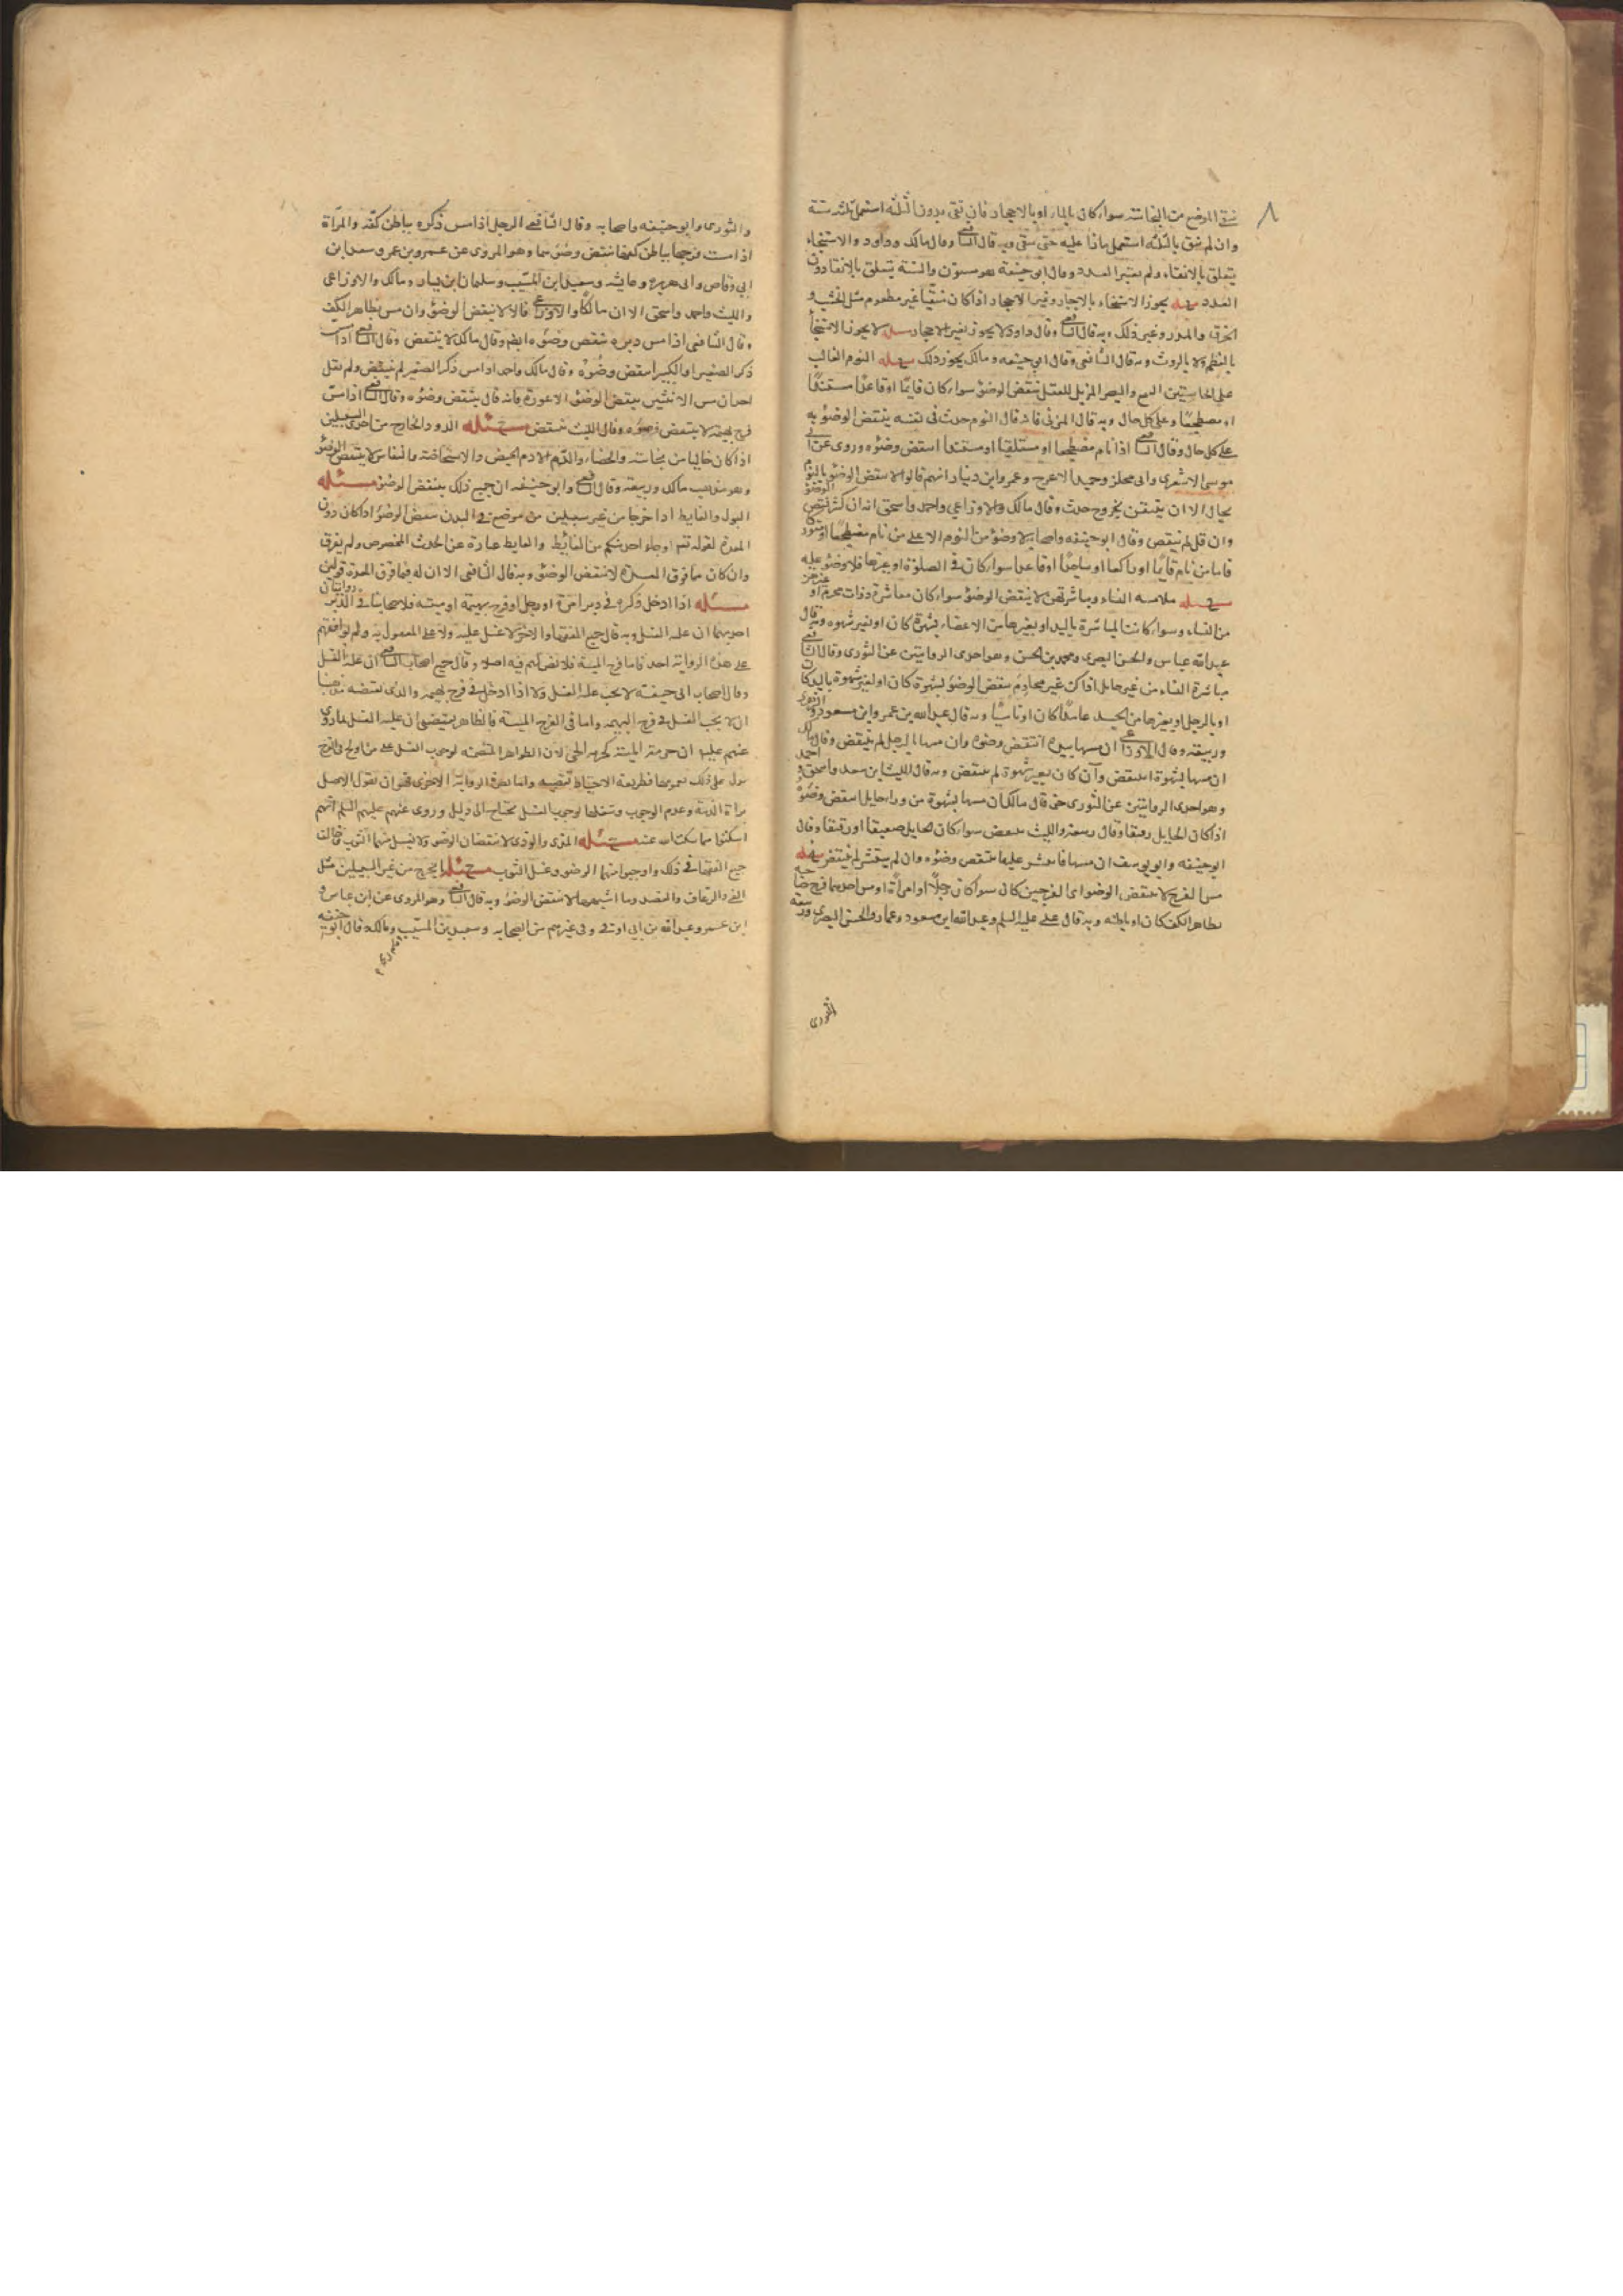 ٨
ينقى الموضع من النجاسة سواء كان بالماء او بالاحجار فان نقى بدون الثلثة استعمل ثلثة سنة
وان لم ينق بالثلثة استعمل مازاد عليه حتى ينقى وبه قال الشافعي وقال مالك وداود والاستنجاء
يتعلق بالانقاء ولم يعتبر العدد وقال ابو حنيفة هو مسنون والسنة يتعلق بالانقاء دون
العدد مسئله يجوز الاستنجاء بالاحجار وغير الاحجار اذا كان منقيا غير مطعوم مثل الخشب و
الخرق والمدر وغير ذلك وبه قال الشافعي وقال داود لا يجوز بغير الاحجار مسئله لا يجوز الاستنجاء
بالعظم ولا بالروث وبه قال الشافعي وقال ابو حنيفه ومالك يجوز ذلك مسئله النوم الغالب
على الحاستين السمع والبصر المزيل للعقل ينقض الوضوء سواء كان قايما او قاعدا مستندا
او مضطجعا وعلى كل حال وبه قال المزني فانه قال النوم حدث في نفسه ينتقض الوضوء به
على كل حال وقال الشافعي اذا نام مضطجعا او مستلقيا او مستندا انتقض وضوءه وروى عن ابي
موسى الاشعرى وابى مجلز وحميد الاعرج وعمرو ابن دينار انهم قالوا لا ينقض الوضوء بالنوم
بحال الا ان يتيقن بخروح حدث وقال مالك والاوزاعي واحمد واسحق انه ان كثر نقض الوضوء
وان قل لم ينقض وقال ابو حنيفه واصحابه لا وضوء من النوم الا على من نام مضطجعا او متوركا
فاما من نام قايما او راكعا او ساجدا او قاعدا سواء كان في الصلوة او غيرها فلا وضوء عليه
مسئله ملامسه النساء ومباشرتهن لا ينقض الوضوء سواء كان مباشرة ذوات محرم او غيرهن
من النساء وسواء كانت المباشرة باليد او بغيرها من الاعضاء بشهوة كان او بغير شهوه وبه قال
عبد الله عباس والحسن البصرى ومحمد بن الحسن وهو احدى الروايتين عن الثورى وقال الشافعي
مباشرة النساء من غير حايل اذا كن غير محارم ينقض الوضوء بشهوة كان او بغير شهوة باليد كان
او بالرجل او بغيرها من الجسد عامدا كان او ناسيا وبه قال عبد الله بن عمر وابن مسعود والزهرى
وربيعة وقال الاوزاعي ان مسها بيده انتقض وضوءه وان مسها بالرجل لم ينتقض وقال مالك
ان مسها بشهوة انتقض وان كان بغير شهوة لم ينتقض وبه قال الليث ابن سعد واسحق واحمد
وهو احدى الروايتين عن الثورى حتى قال مالك ان مسها بشهوة من وراء حايل انتقض وضوءه
اذا كان الحايل رقيقا وقال ربيعة والليث ينتقض سواء كان الحايل صفيقا او رقيقا وقال
ابو حنيفه وابو يوسف ان مسها فانتشر عليها انتقض وضوءه وان لم ينتشر لم ينتقض مسئله
مس الفرج لا ينقض الوضوء اى الفرجين كان سواء كان رجلا او امراة او مس احدهما فرج صاحبه
بظاهر الكف كان او باطنه وبه قال على عليه السلم وعبد الله ابن مسعود وعمار والحسن البصرى وربيعة
الثورى
والثورى وابو حنيفه واصحابه وقال الشافعي الرجل اذا مس ذكره بباطن كفه والمراة
اذا مست فرجها بباطن كفها انتقض وضوءهما وهو المروى عن عمر وبن عمر وسعد ابن
ابي وقاص وابى هريره وعايشه وسعيد ابن المسيب وسلمان ابن يسار ومالك والاوزاعى
والليث واحمد واسحق الا ان مالكا والاوزاعي قالا لا ينتقض الوضوء وان مس بظاهر الكف
وقال الشافعي اذا مس دبره ينتقض وضوءه ايضا وقال مالك لا ينتقض وقال الشافعي اذا مس
ذكر الصغير او الكبير انتقض وضوءه وقال مالك واحمد اذا مس ذكر الصغير لم ينتقض ولم نقل
احد ان مس الانثيين ينقض الوضوء الا عروة فانه قال ينتقض وضوءه وقال الشافعي اذا مس
فرج بهيمة لا ينتقض وضوءه وقال الليث ينتقض مسئله الدود الخارج من احدى السبيلين
اذا كان خاليا من نجاسة والحصاء والدم الا دم الحيض والاستحاضة والنفاس لا ينقض الوضوء
وهو مذهب مالك وربيعة وقال الشافعي وابو حنيفه ان جميع ذلك ينقض الوضوء مسئله
البول والغايط اذا خرجا من غير سبيلين من موضع في البدن ينقض الوضوء اذا كان دون
المعدة لقوله تعم او جاء احد منكم من الغائط والغايط عبارة عن الحدث المخصوص ولم يفرق
وان كان مما فوق المعدة لا ينقض الوضوء وبه قال الشافعي الا ان له فيما فوق المعدة قولين
مسئله اذا ادخل ذكره في دبر امراة او رجل او فرج بهيمة او ميته فلاصحابنا في الدبر روايتان
احديهما ان عليه الغسل وبه قال جميع الفقهاء والاخرى لا غسل عليه ولا على المفعول به ولم يوافقهم
على هذه الرواية احد فاما فرج الميتة فلا نص لهم فيه اصلا وقال جميع اصحاب الشافعي ان عليه الغسل
وقال اصحاب ابى حنيفة لا يجب عليه الغسل ولا اذا ادخل في فرج بهيمه والذى يقتضيه مذهبنا
ان لا يجب الغسل في فرج البهيمه واما في الفرج الميتة فالظاهر يقتضى ان عليه الغسل لما روى
عنهم عليهم ان حرمة الميتة كحرمه الحى لان الظواهر المتضمنه لوجوب الغسل على من اولج في الفرج
يدل على ذلك بعمومها فطريقه الاحتياط تقتضيه واما نصرة الرواية الاخرى فهو ان نقول الاصل
براة الذمة وعدم الوجوب وشغلها بوجوب الغسل يحتاج الى دليل وروى عنهم عليهم السلم انهم
اسكتوا عما سكت الله عنه مسئله المذى والوذى لا ينقضان الوضوء ولا يغسل منهما الثوب وخالف
جميع الفقهاء في ذلك واوجبوا منهما الوضوء وغسل الثوب مسئله ما يخرج من غير السبيلين مثل
القئ والرعاف والفصد وما اشبهها لا ينقض الوضوء وبه قال الشافعي وهو المروى عن ابن عباس و
ابن عمر وعبد الله بن ابي اوفى وفي غيرهم من الصحابه وسعيد بن المسيب ومالك وقال ابو حنيفه